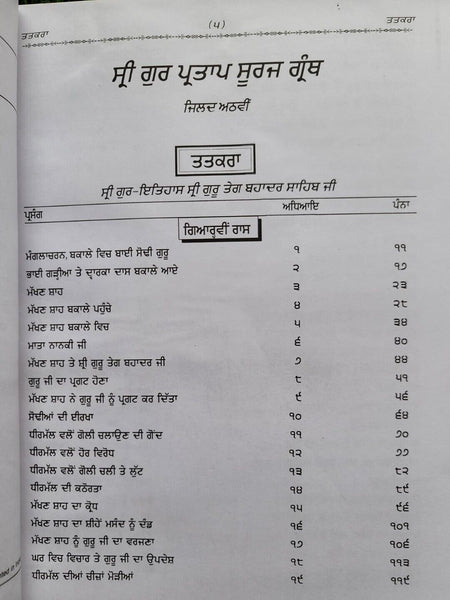 ਤਤਕਰਾ (੫) ਤਤਕਰਾ
ਸ੍ਰੀ ਗੁਰ ਪ੍ਰਤਾਪ ਸੂਰਜ ਗ੍ਰੰਥ
ਜਿਲਦ ਅਠਵੀਂ
ਤਤਕਰਾ
ਸ੍ਰੀ ਗੁਰ-ਇਤਿਹਾਸ ਸ੍ਰੀ ਗੁਰੂ ਤੇਗ ਬਹਾਦਰ ਸਾਹਿਬ ਜੀ
ਪ੍ਰਸੰਗ ਅਧਿਆਇ ਪੰਨਾ
ਗਿਆਰ੍ਹਵੀਂ ਰਾਸ
ਮੰਗਲਾਚਰਨ, ਬਕਾਲੇ ਵਿਚ ਬਾਈ ਸੋਢੀ ਗੁਰੂ ੧ ੧੧
ਭਾਈ ਗੜ੍ਹੀਆ ਤੇ ਦ੍ਵਾਰਕਾ ਦਾਸ ਬਕਾਲੇ ਆਏ ੨ ੧੭
ਮੱਖਣ ਸ਼ਾਹ ੩ ੨੩
ਮੱਖਣ ਸ਼ਾਹ ਬਕਾਲੇ ਪਹੁੰਚੇ ੪ ੨੮
ਮੱਖਣ ਸ਼ਾਹ ਬਕਾਲੇ ਵਿਚ ੫ ੩੪
ਮਾਤਾ ਨਾਨਕੀ ਜੀ ੬ ੪੦
ਮੱਖਣ ਸ਼ਾਹ ਤੇ ਸ੍ਰੀ ਗੁਰੂ ਤੇਗ ਬਹਾਦਰ ਜੀ ੭ ੪੪
ਗੁਰੂ ਜੀ ਦਾ ਪ੍ਰਗਟ ਹੋਣਾ ੮ ੫੧
ਮੱਖਣ ਸ਼ਾਹ ਨੇ ਗੁਰੂ ਜੀ ਨੂੰ ਪ੍ਰਗਟ ਕਰ ਦਿੱਤਾ ੯ ੫੬
ਸੋਢੀਆਂ ਦੀ ਈਰਖਾ ੧੦ ੬੪
ਧੀਰਮੱਲ ਵਲੋਂ ਗੋਲੀ ਚਲਾਉਣ ਦੀ ਗੋਂਦ ੧੧ ੭੦
ਧੀਰਮੱਲ ਵਲੋਂ ਹੋਰ ਵਿਰੋਧ ੧੨ ੭੭
ਧੀਰਮੱਲ ਵਲੋਂ ਗੋਲੀ ਚਲੀ ਤੇ ਲੁੱਟ ੧੩ ੮੨
ਧੀਰਮੱਲ ਦੀ ਕਠੋਰਤਾ ੧੪ ੮੯
ਮੱਖਣ ਸ਼ਾਹ ਦਾ ਕ੍ਰੋਧ ੧੫ ੯੬
ਮੱਖਣ ਸ਼ਾਹ ਦਾ ਸ਼ੀਹੇਂ ਮਸੰਦ ਨੂੰ ਦੰਡ ੧੬ ੧੦੧
ਮੱਖਣ ਸ਼ਾਹ ਨੂੰ ਗੁਰੂ ਜੀ ਦਾ ਵਰਜਣਾ ੧੭ ੧੦੬
ਘਰ ਵਿਚ ਵਿਚਾਰ ਤੇ ਗੁਰੂ ਜੀ ਦਾ ਉਪਦੇਸ਼ ੧੮ ੧੧੩
ਧੀਰਮੱਲ ਦੀਆਂ ਚੀਜ਼ਾਂ ਮੋੜੀਆਂ ੧੯ ੧੧੯